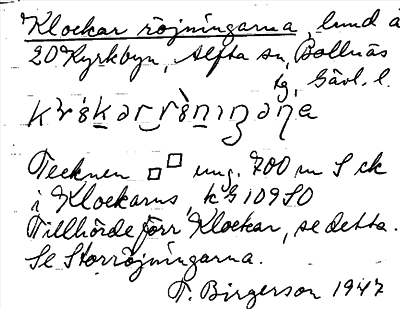 Klockar röjningarna, lund å
20 Kyrkbyn, Alfta sn, Bollnäs
tg, Gävl. l.
Tecknen □ □ ung. 700 m S ck
i Klockarns, kB 109 SO
Tillhörde förr Klockar, se detta.
Se Storröjningarna.
T. Birgerson 1947